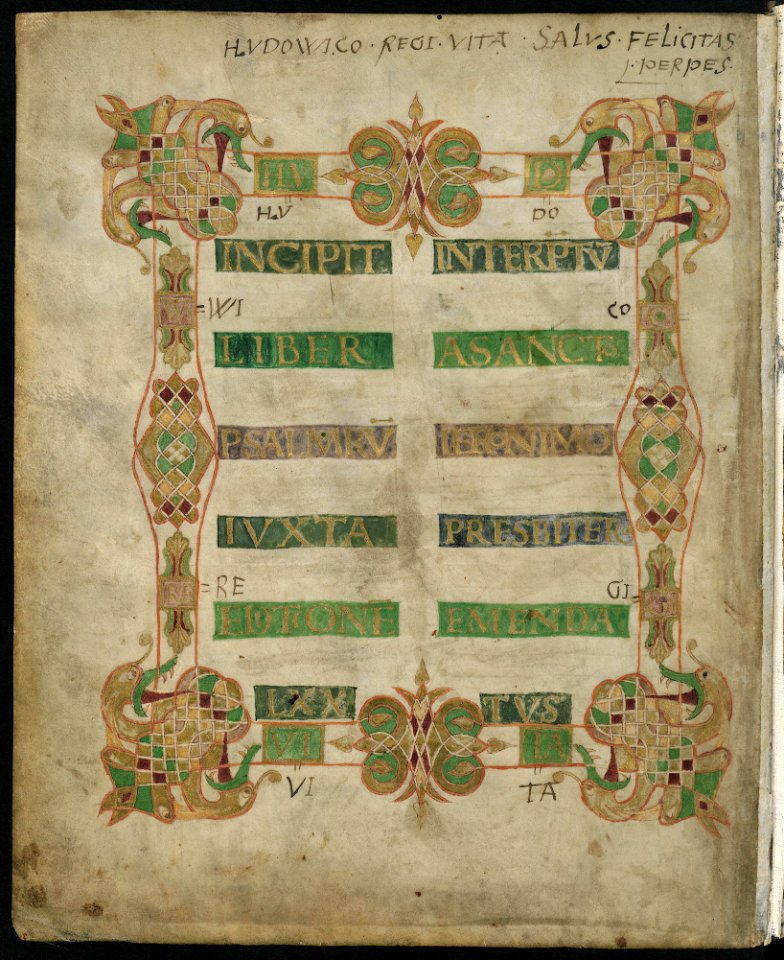 HVDOWICO · REGI · VITA · SALVS · FELICITAS
PERPES ·
HV DO
HV DO
INCIPIT INTERPTV
WI CO
LIBER A SANCTO
PSALMORV IERONIMO
IVXTA PRESBITER
RE GI
EDITIONE EMENDA
LXX TVS
VI TA
VI TA